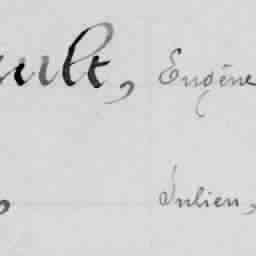 ult, Eugène
, Julien,